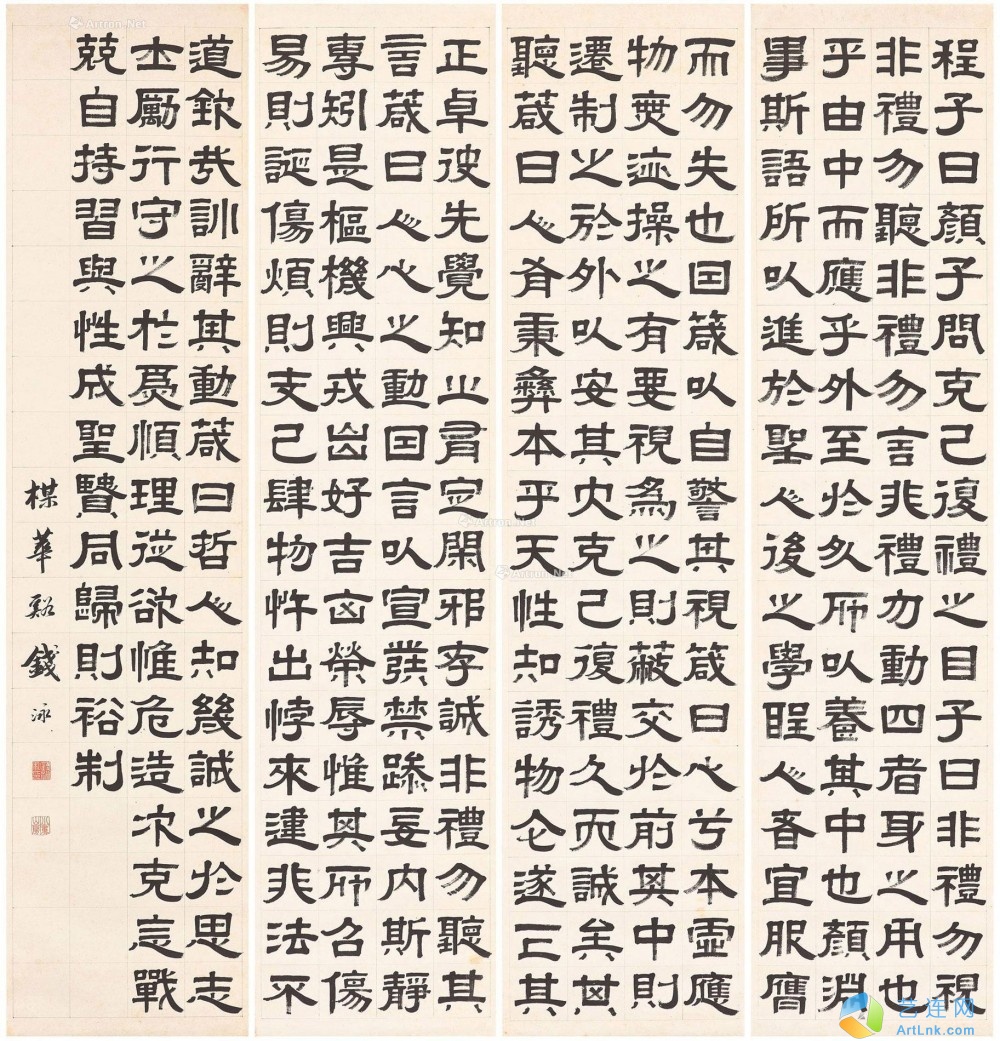 程子曰顏子問克己復禮之目子曰非禮勿視
非禮勿聽非禮勿言非禮勿動四者身之用也
乎由中而應乎外至於久所以養其中也顏淵
事斯語所以進於聖人後之學聖人者宜服膺
而勿失也因箴以自警其視箴曰心兮本虛應
物無迹操之有要視為之則蔽交於前其中則
遷制之於外以安其內克己復禮久而誠矣其
聽箴曰人有秉彝本乎天性知誘物化遂亡其
正卓彼先覺知止有定閑邪存誠非禮勿聽其
言箴曰人心之動因言以宣發禁躁妄內斯靜
專矧是樞機興戎出好吉凶榮辱惟其所召傷
易則誕傷煩則支己肆物忤出悖來違非法不
道欽哉訓辭其動箴曰哲人知幾誠之於思志
士勵行守之於為順理從欲惟危造次克念戰
兢自持習與性成聖賢同歸則裕制
楳華谿錢泳
Artron.Net
艺连网
ArtLnk.com